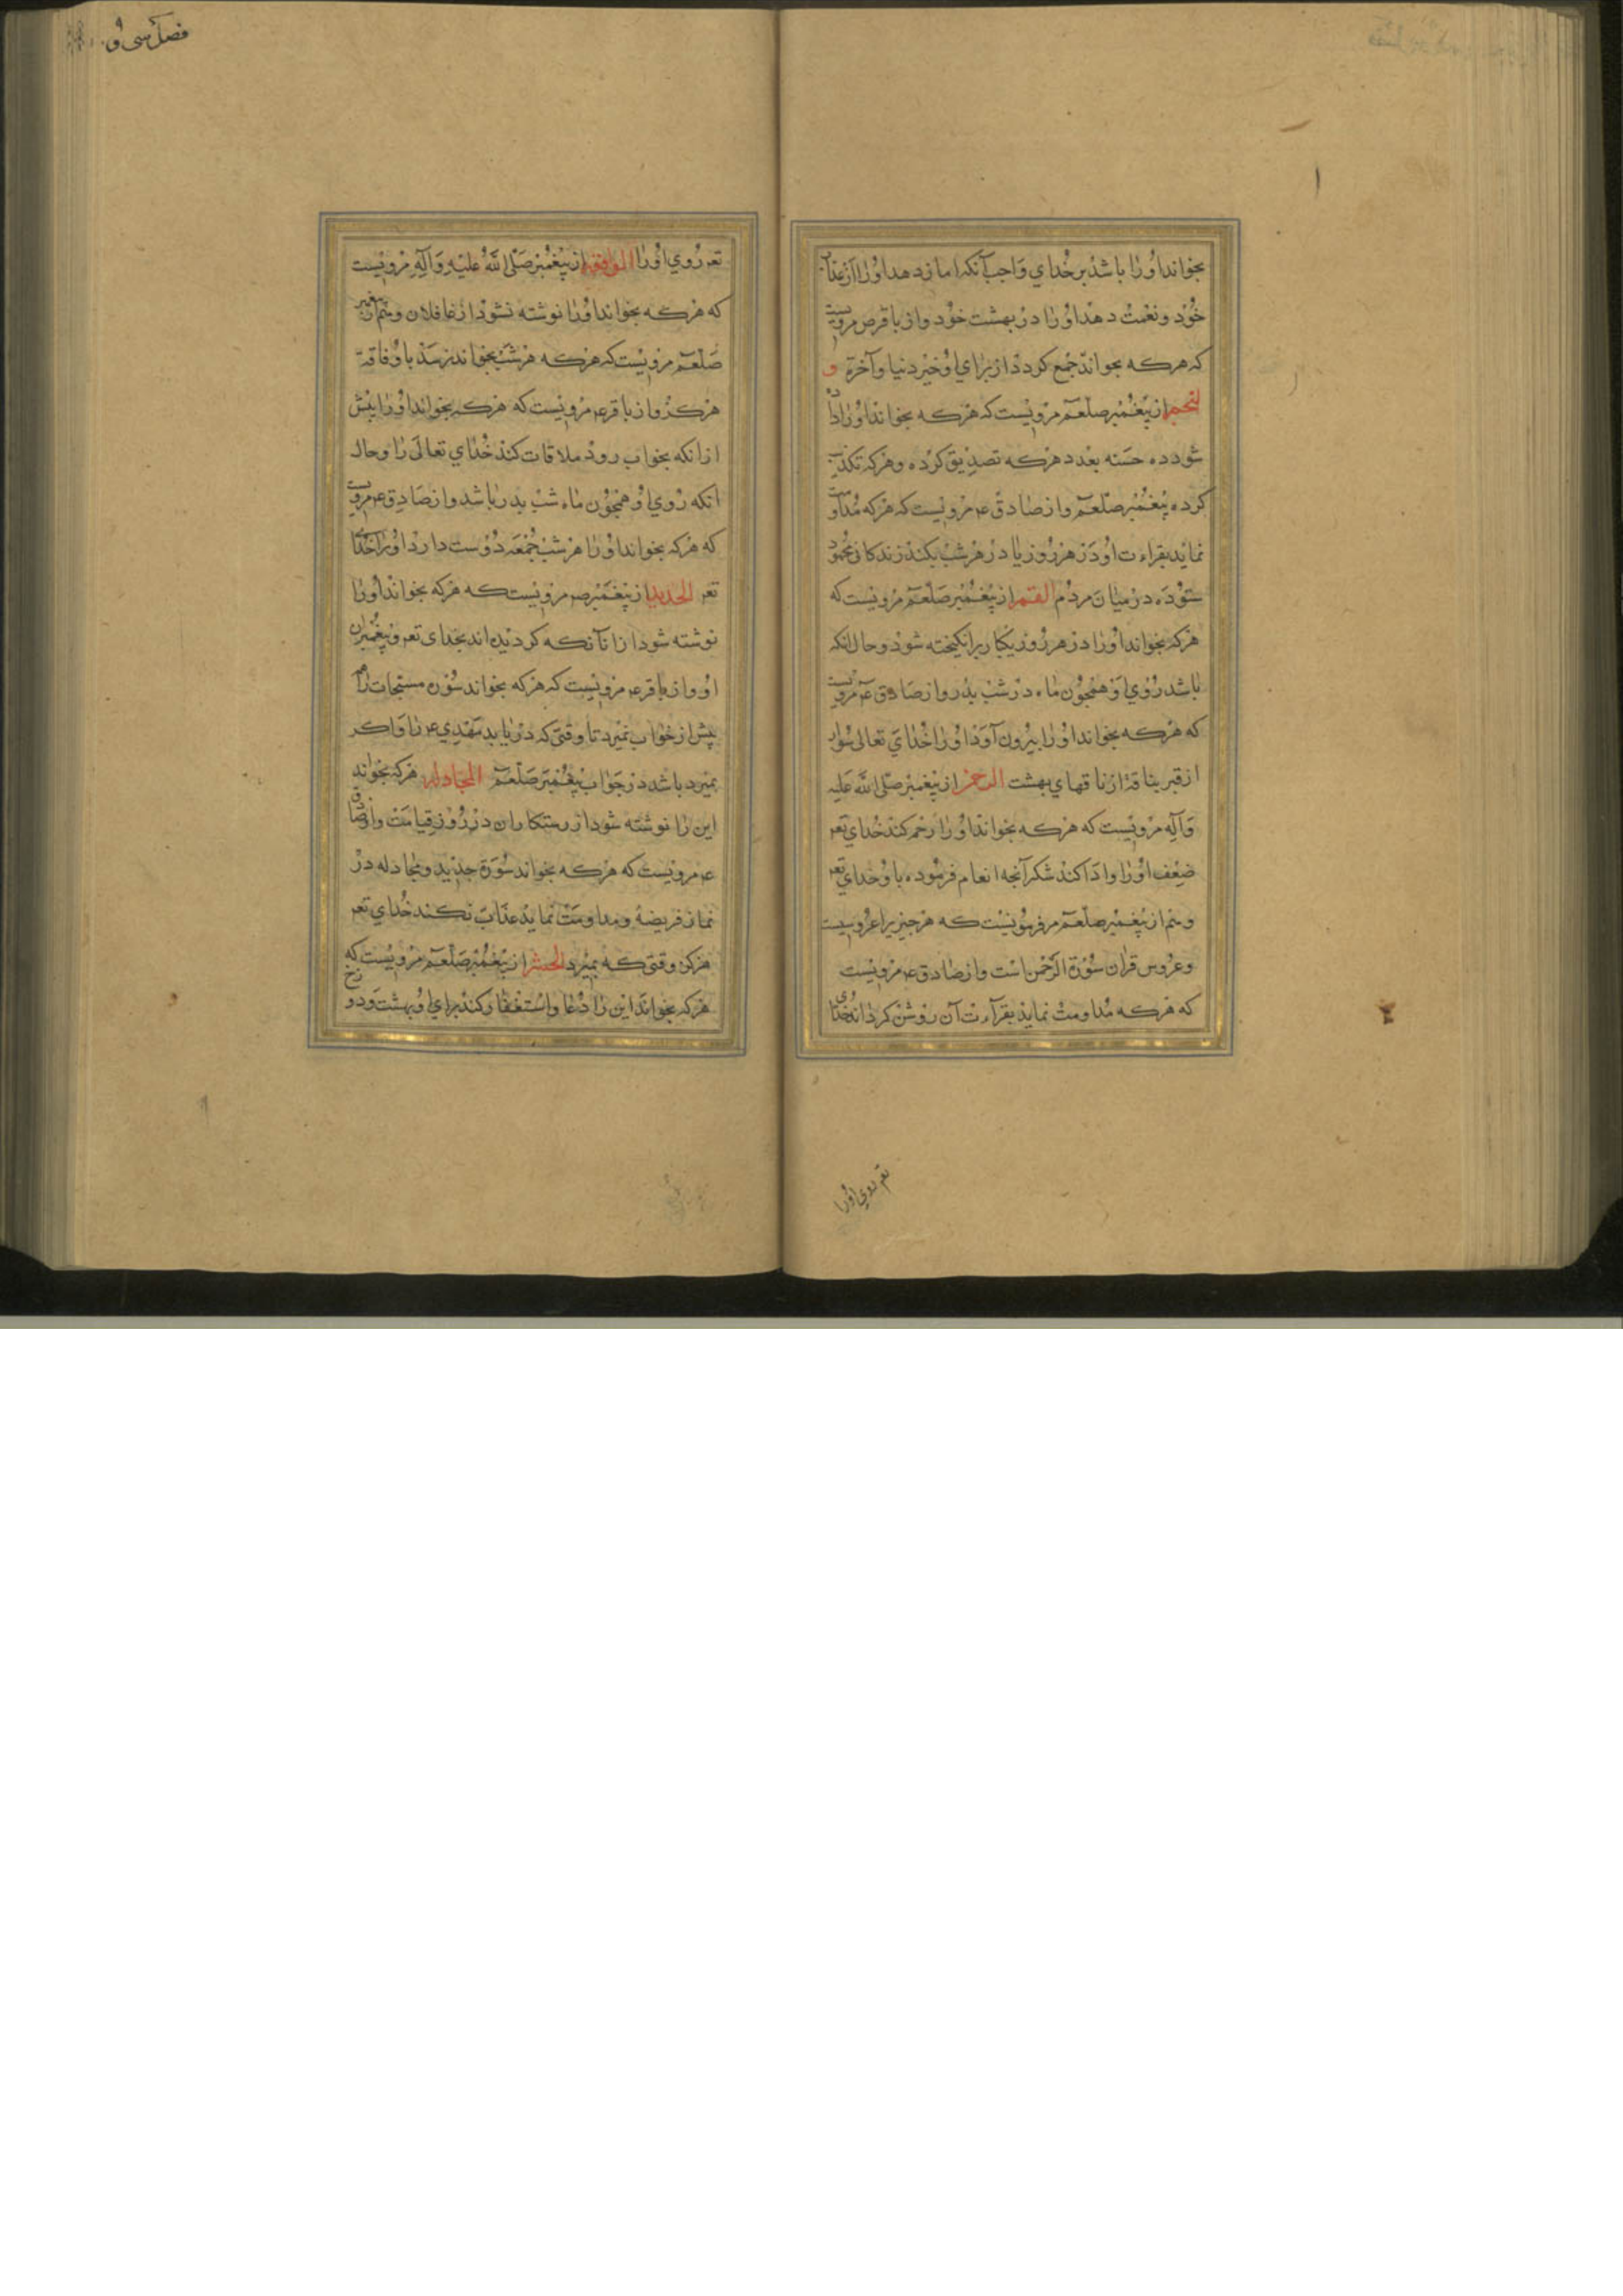 بخواند اورا باشد بر خدای واجب آنکه امان دهد اورا از عذاب
خود و نعمت دهد اورا در بهشت خود و از باقر ص مرویست
که هرکه بخواند جمع کردد از برای او خیر دنیا و آخرة و
لنجم از پیغمبر صلعم مرویست که هرکه بخواند اورا داده
شود ده حسنه بعدد هرکه تصدیق کرده و هرکه تکذیب
کرده پیغمبر صلعم و از صادق ع مرویست که هرکه مداومت
نماید بقراءت او در هر روز یا در هر شب بکند زندکانی محمود
ستوده در میان مردم القمر از پیغمبر صلعم مرویست که
هرکه بخواند اورا در هر روز یکبار برانکیخته شود و حال انکه
باشد روی او همچون ماه در شب بدر و از صادق ع مرویست
که هرکه بخواند اورا بیرون آورد اورا خدای تعالی سوار
از قبر بناقة از ناقهای بهشت الرحمن از پیغمبر صلی الله علیه
وآله مرویست که هرکه بخواند اورا رحم کند خدای تعر
ضعف اورا و ادا کند شکر آنچه انعام فرموده باو خدای تعر
و هم از پیغمبر صلعم مرویست که هر چیزیرا عروسیست
و عروس قران سورة الرحمن است و از صادق ع مرویست
که هرکه مداومت نماید بقرآءت آن روشن کرداند خدای
تعر روی اورا
فصل سی و
تعر روی اورا الواقعه از پیغمبر صلی الله علیه وآله مرویست
که هرکه بخواند اورا نوشته نشود از غافلان و هم از پیغمبر
صلعم مرویست که هرکه هر شب بخواند نرسد باو فاقة
هرکز و از باقر ع مرویست که هرکه بخواند اورا پیش
از انکه بخواب رود ملاقات کند خدای تعالی را و حال
انکه روی او همچون ماه شب بدر باشد و از صادق ع مرویست
که هرکه بخواند اورا هر شب جمعه دوست دارد اورا خدای
تعر الحدید از پیغمبر ص مرویست که هرکه بخواند اورا
نوشته شود از انانکه کردیده اند بخدای تعر و پیغمبران
او و از باقر ع مرویست که هرکه بخواند سوره مسبحات را
پیش از خواب نمیرد تا وقتی که دریابد مهدی ع را و اکر
بمیرد باشد در جواب پیغمبر صلعم المجادله هرکه بخواند
این را نوشته شود از رستکاران در روز قیامت و از صادق
ع مرویست که هرکه بخواند سورة حدید و مجادله در
نماز فریضة و مداومت نماید عذاب نکند خدای تعر
هرکز وقتی که بمیرد الحشر از پیغمبر صلعم مرویست که
هرکه بخواند این را دعا و استغفار کند برای او بهشت و دوزخ